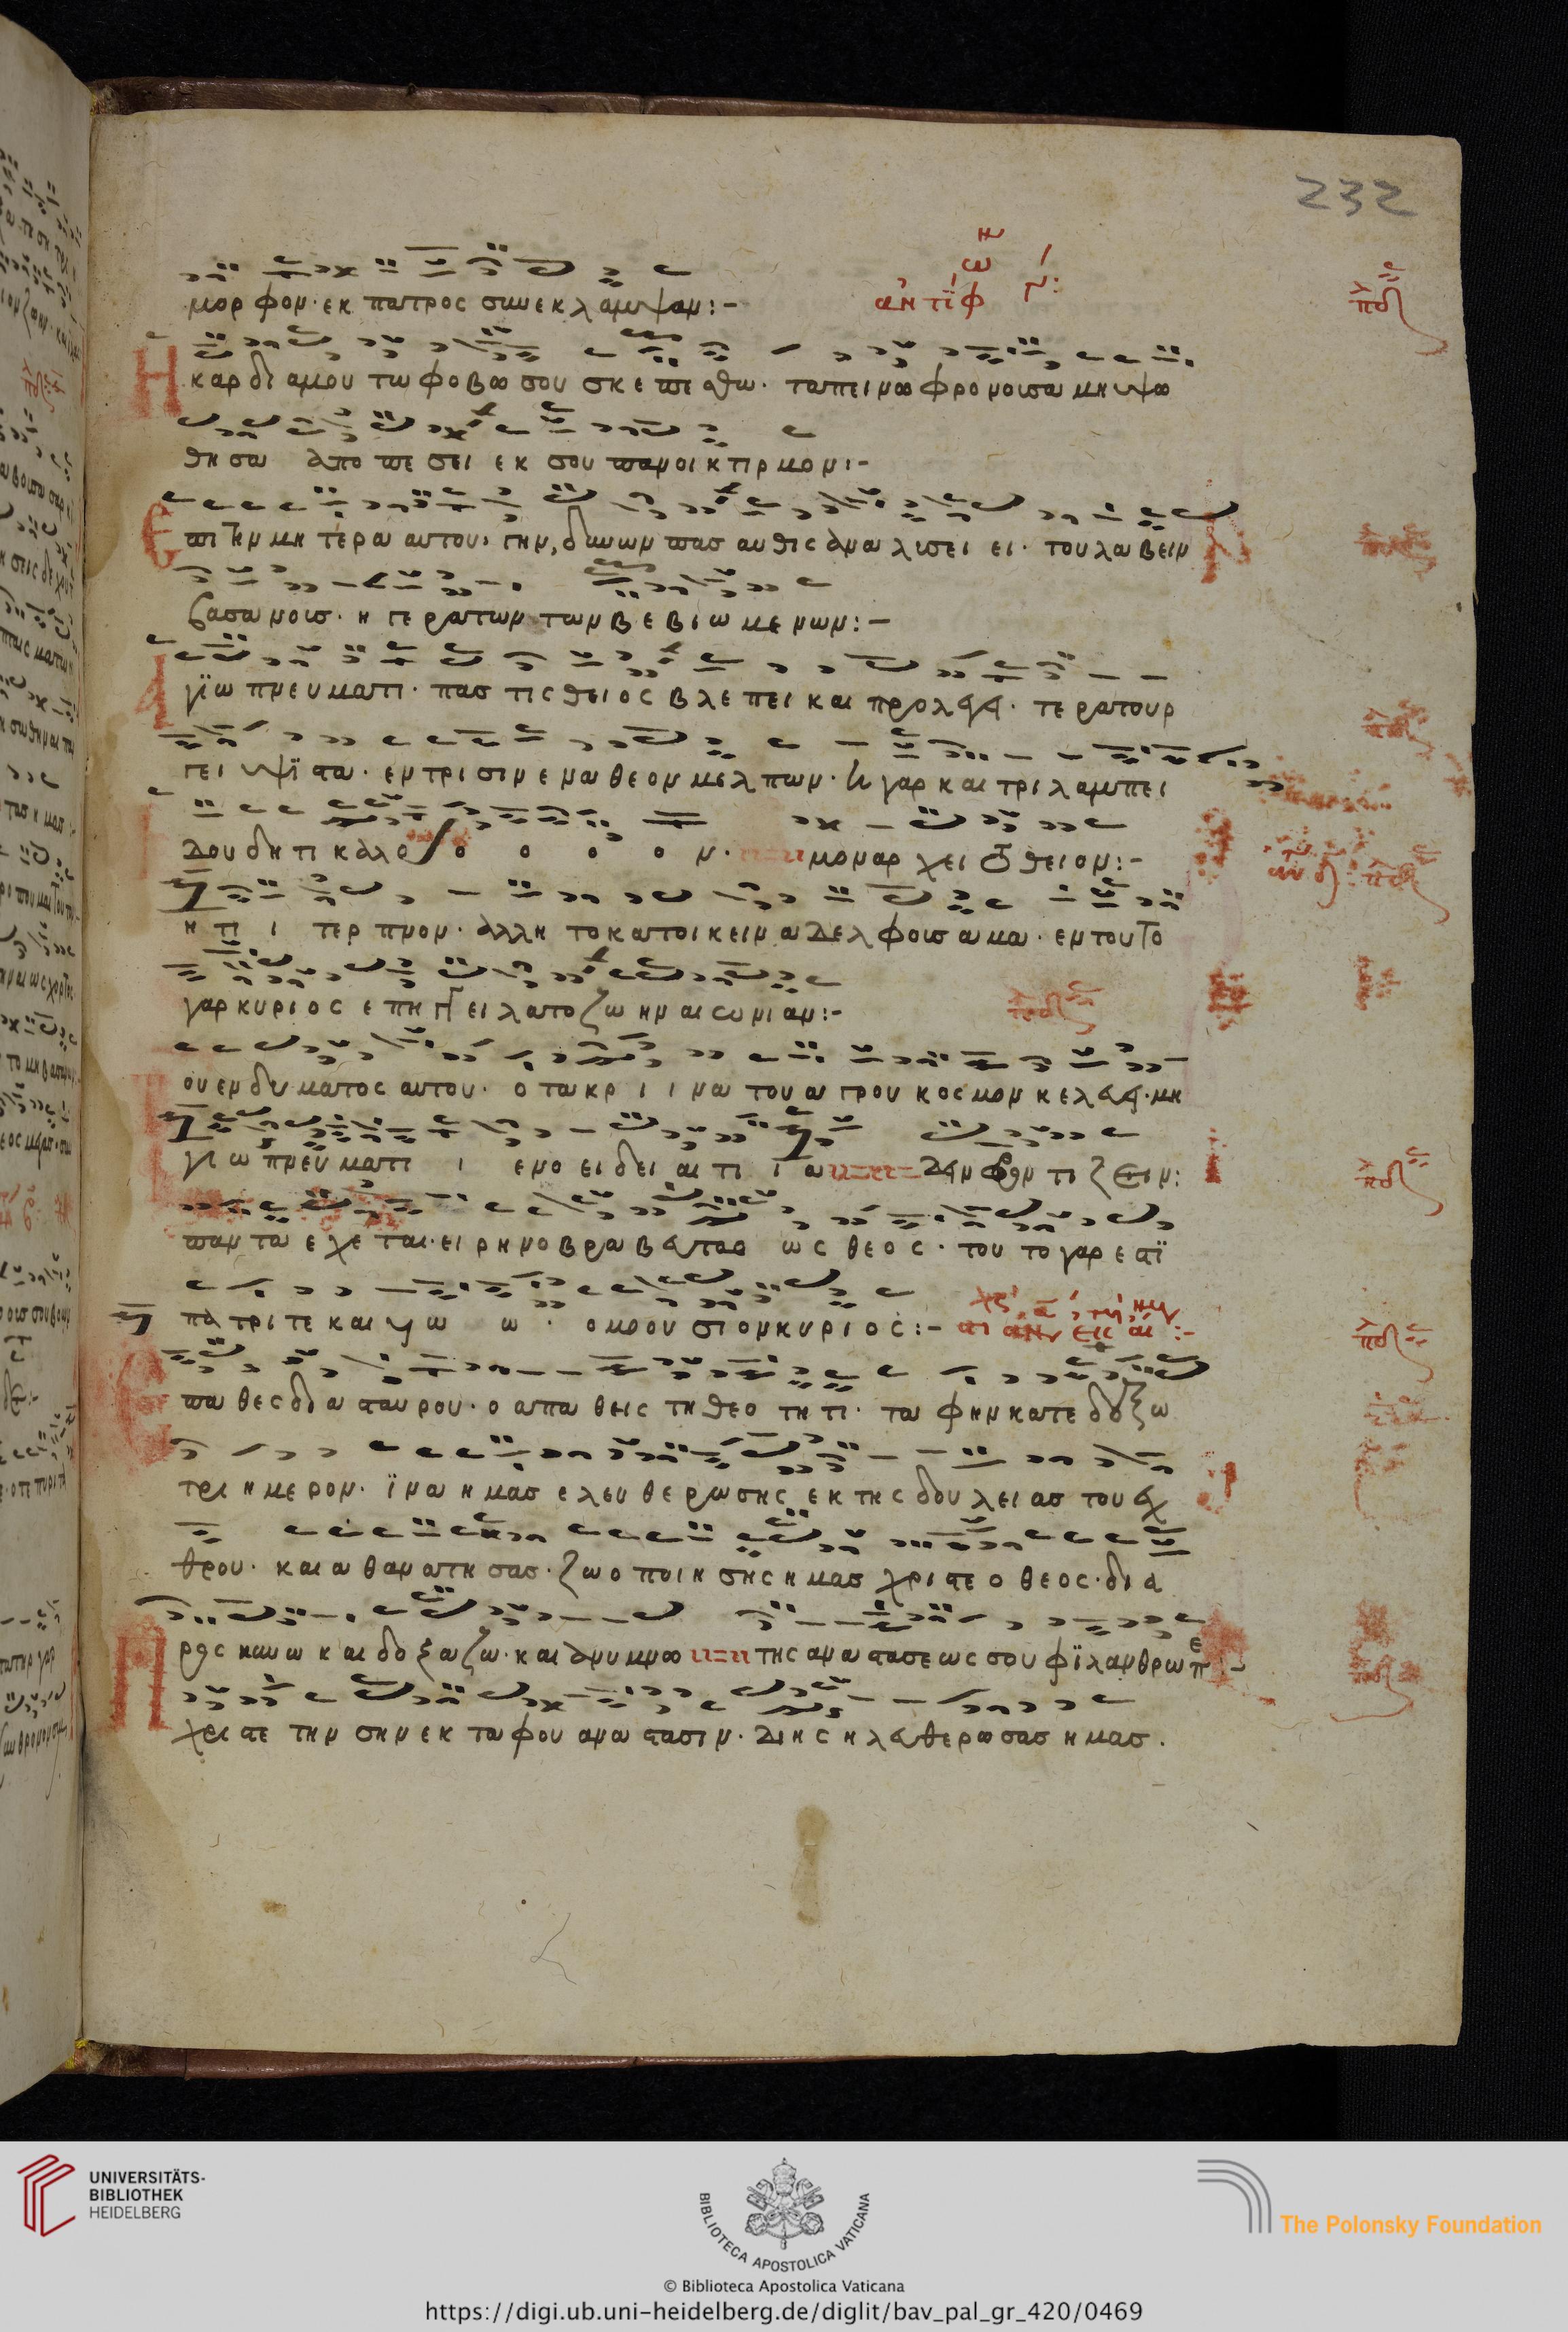 232
μορφον· εκ πατρος συνεκλαμψαν:-
ἀντίφ
Η καρδιαμου τω φοβω σου σκεπεσθω· ταπεινοφρονουσα μη υψω
θησα αποπεσει εκ σου πανοικτιρμον:-
Επι την μητερα αυτου· γην, δυνων πας αυθις αναλυσει
βασανους· η γερατων των βεβιωμενων:-
Αγϊω πνευματι· πας τις θειος βλεπει και προλεγει· τερατουρ
γει υψιστα· εν τρισιν ενα θεον μελπων· ει γαρ και τριλαμπει
ον· μοναρχει το θειον:-
η τι ι τερπνον· αλλη το κατοικειν αδελφους αμα· εν τουτο
γαρ κυριος επηγγειλατο ζωην αιωνιαν:-
ου ενδυματος αυτου· ο τα κριιινα του αγρου κοσμον κελευει· μη
γιω πνευματι ι ενοειδει αιτιια
παντα εχεται· ειρηνοβραβευτως ως θεος· τουτο γαρ εστϊ
πατρι τε και υω ω· ομοουσιον κυριος:-
Επαθες δια σταυρου· ο απαθεις τη θεοτητι· ταφην κατεδεξω
τριημερον· ϊνα ημας ελευθερωσης εκ της δουλειας του εχ
θρου· και αθανατησας· ζωοποιησης ημας χριστε ο θεος· δια
Προσκυνω και δοξαζω· και ανυμνω της αναστασεως σου φϊλανθρωπε
χριστε την σην εκ ταφου αναστασιν· δι ης ηλευθερωσας ημας.
UNIVERSITÄTS-
BIBLIOTHEK
HEIDELBERG
BIBLIOTECA APOSTOLICA VATICANA
© Biblioteca Apostolica Vaticana
The Polonsky Foundation
https://digi.ub.uni-heidelberg.de/diglit/bav_pal_gr_420/0469